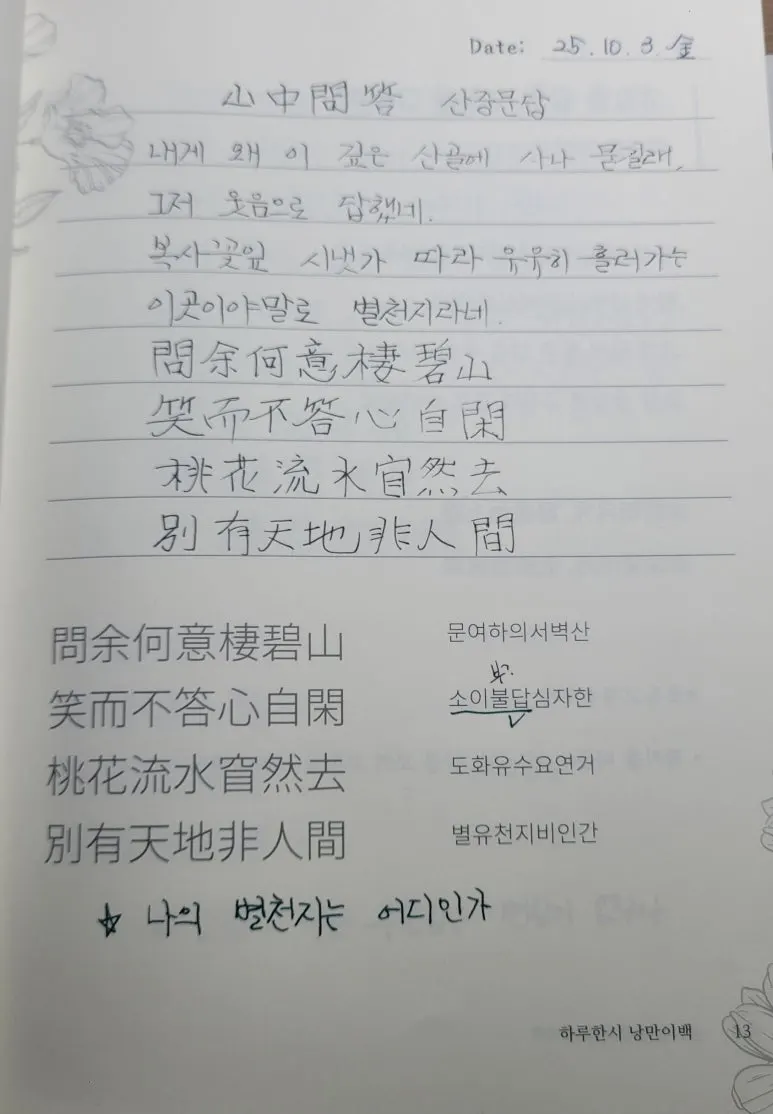 Date: 25. 10. 3. 金
山中問答 산중문답
내게 왜 이 깊은 산골에 사나 묻길래,
그저 웃음으로 답했네.
복사꽃잎 시냇가 따라 유유히 흘러가는
이곳이야말로 별천지라네.
問余何意棲碧山
笑而不答心自閑
桃花流水窅然去
別有天地非人間
問余何意棲碧山 문여하의서벽산
부
笑而不答心自閑 소이불답심자한
桃花流水窅然去 도화유수요연거
別有天地非人間 별유천지비인간
☆ 나의 별천지는 어디인가
하루한시 낭만이백 13